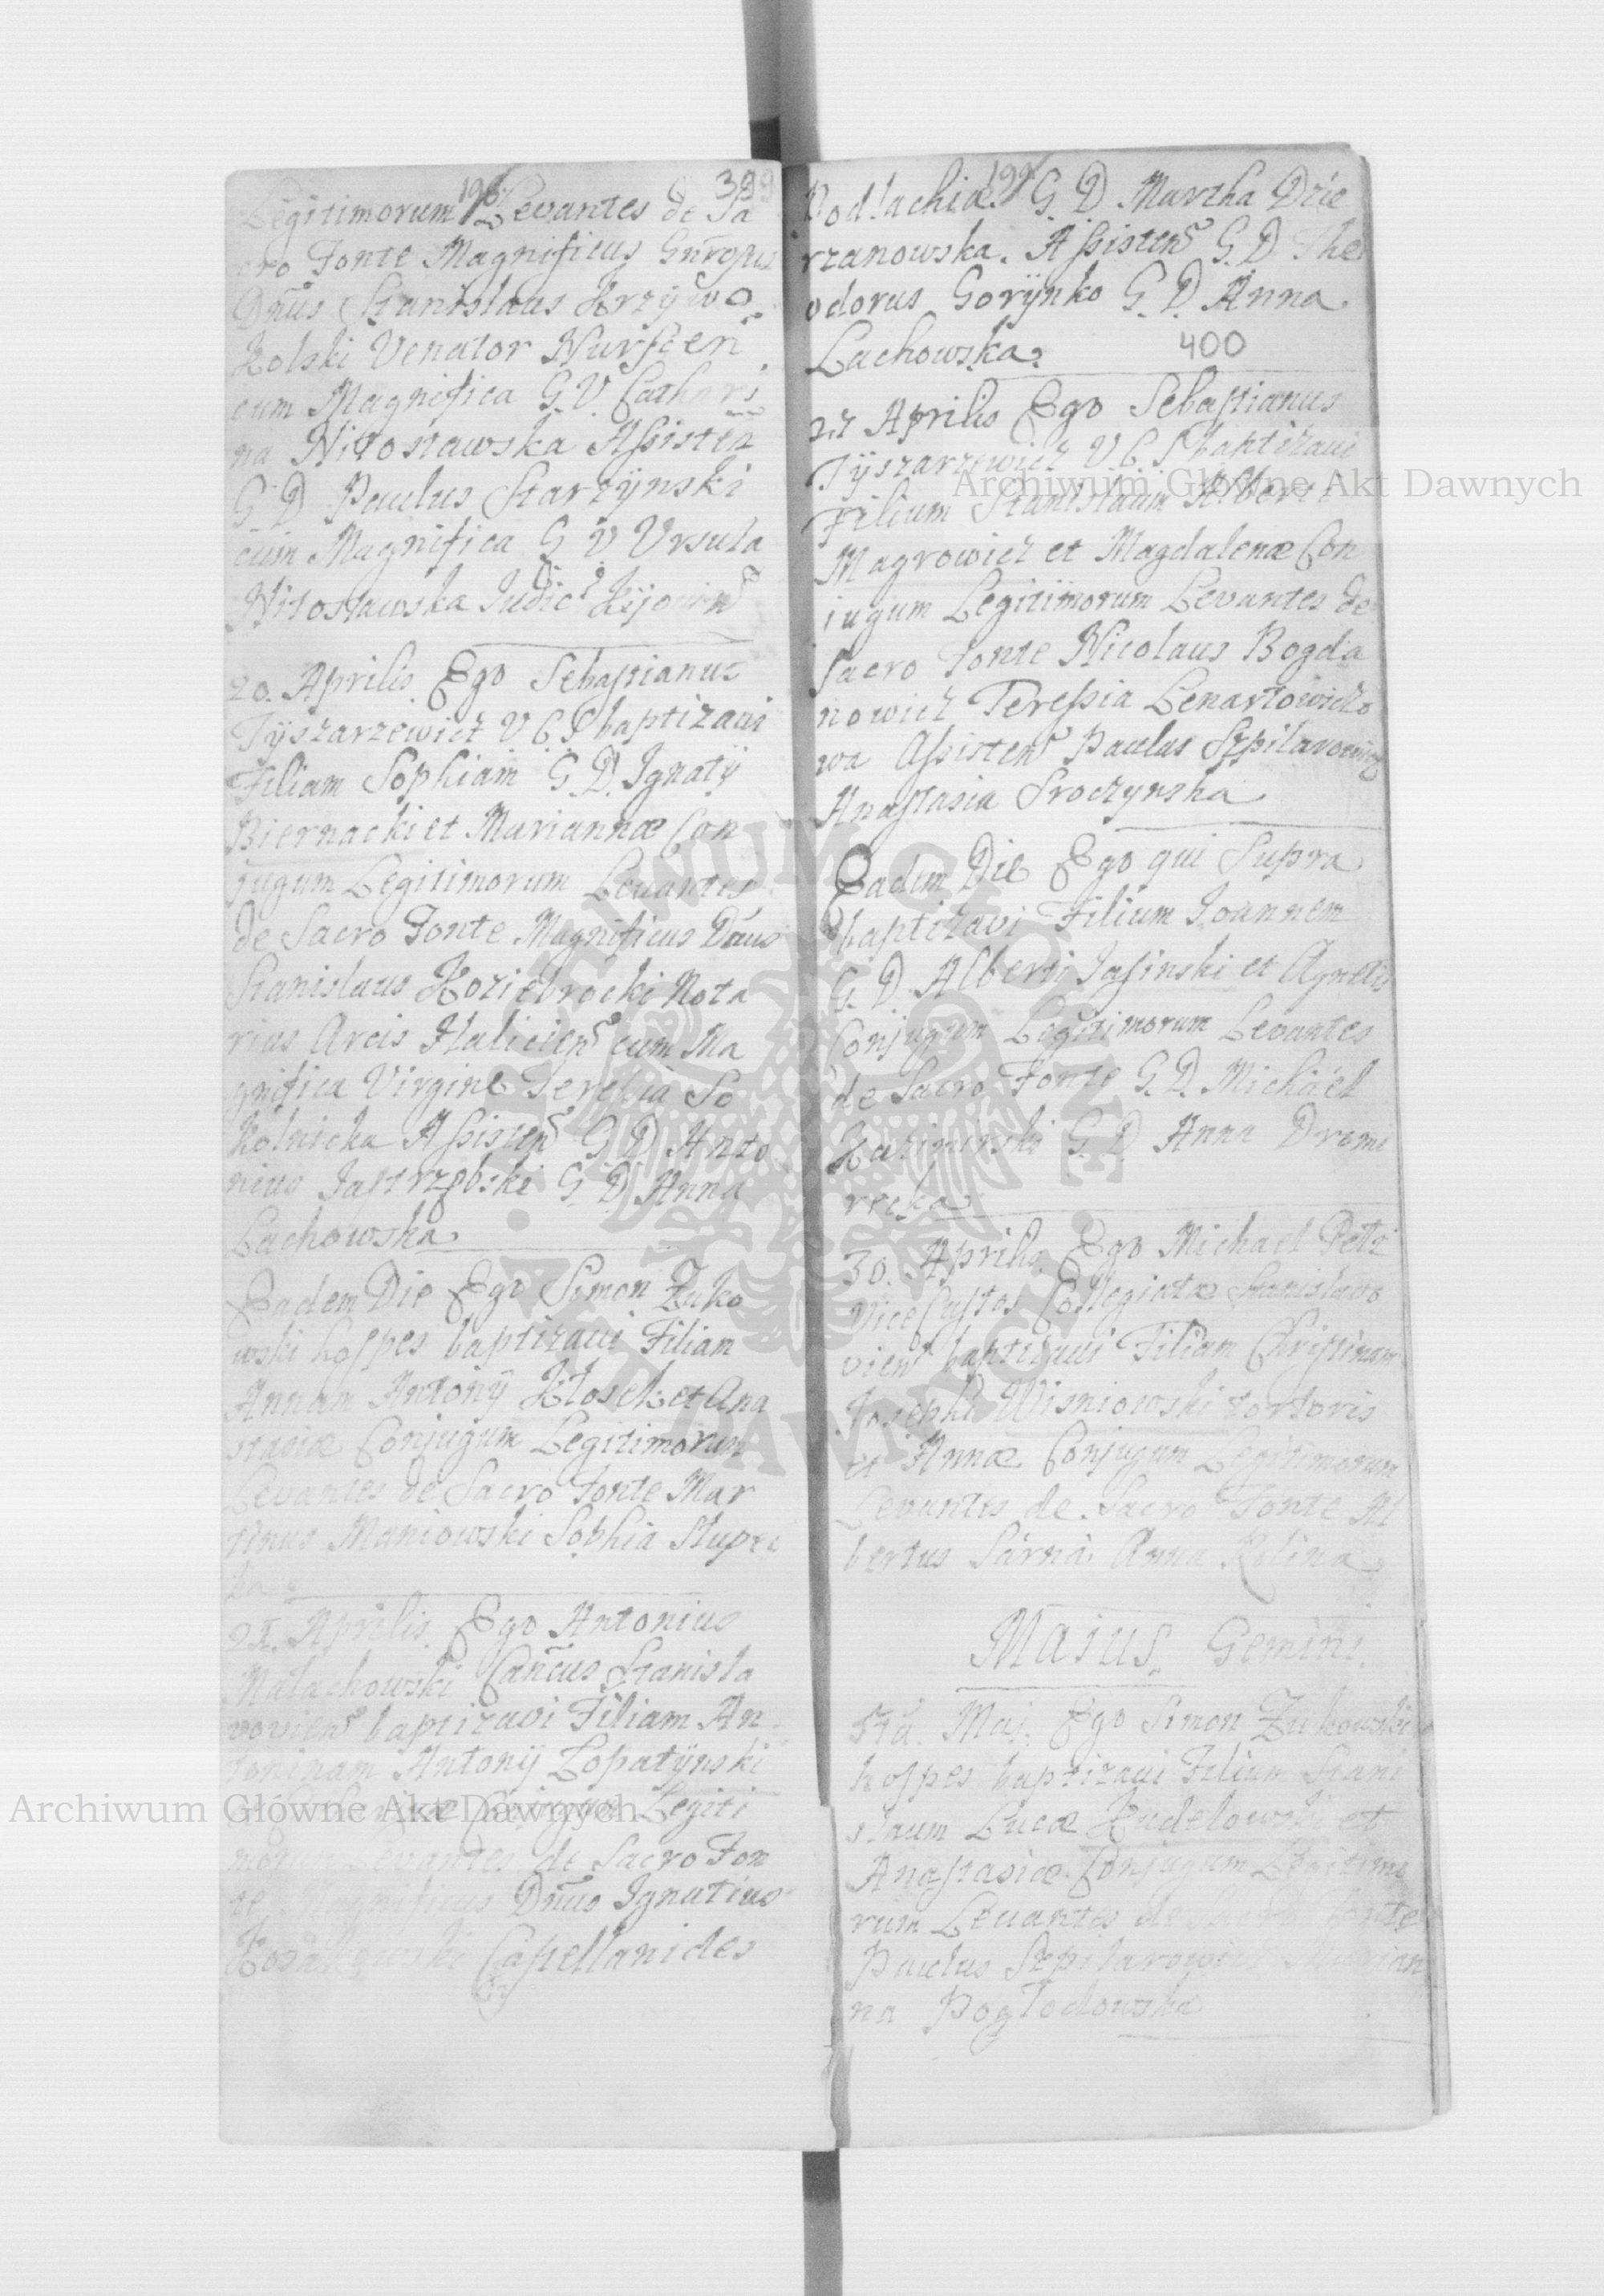 198 399
Legitimorum Levantes de Sa
cro Fonte Magnificus Gnrosus
Dnus Stanislaus Krzywo
kolski Venator Nurscen
cum Magnifica G. V. Cathari
na Nitosławska Assisten
G. D Paulus Starzÿnski
cum Magnifica G V Ursula
Nitosławska Judic Kijovien
20. Aprilis. Ego Sebastianus
Tÿszarzewicz V C S baptizavi
Filiam Sophiam G. D. Ignatÿ
Biernacki et Mariannæ Con
jugum Legitimorum Levantes
de Sacro Fonte Magnificus Dnus
Stanislaus Koziebrocki Nota
rius Arcis Halicien cum Ma
gnifica Virgine Teressia So
kolnicka Assisten G D Anto
nius Jastrzębski G D Anna
Lachowska
Eadem Die Ego Simon Zuko
wski hospes baptizavi Filiam
Annam Antonÿ Kłosek et Ana
stasiæ Conjugum Legitimorum
Levantes de Sacro Fonte Mar
tinus Maniowski Sophia
21. Aprilis. Ego Antonius
Małachowski Cancus Stanisla
vovien baptizavi Filiam An
toninam Antonÿ Łopatÿnski
Conjugum Legiti
morum Levantes de Sacro Fon
te Magnificus Dnus Ignatius
Kossakowski Castellanides
199
Podlachiæ. G. D. Martha Dzie
rzanowska. Assisten G. D The
odorus Gorÿnko G. D. Anna
Lachowska.
400
27 Aprilis Ego Sebastianus
Tÿszarzewicz V C S baptizavi
Filium Stanislaum Alberti
Magrowicz et Magdalenæ Con
jugum Legitimorum Levantes de
Sacro Fonte Nicolaus Bogda
nowicz Teressia Lenartowiczo
wa Assisten Paulus Szpilarowicz
Anastasia Sroczynska
Eadem Die Ego qui Supra
baptizavi Filium Joannem
G. D. Alberti Jasinski et Agnetis
Conjugum Legitimorum Levantes
de Sacro Fonte G. D. Michael
Kazimirski G. D. Anna
30. Aprilis. Ego Michael Petri
Vice Custos Collegiatæ Stanislavo
vien baptizavi Filiam Christinam
Josephi Wisniowski tortoris
et Annæ Conjugum Legitimorum
Levantes de Sacro Fonte Al
bertus Sarna Anna
Majus Gemini.
5ta. Maj. Ego Simon Zukowski
hospes baptizavi Filium Stani
slaum Lucæ Kudelowski et
Anastasiæ Conjugum Legitimo
rum Levantes de Sacro Fonte
Paulus Szpilarowicz Marian
na Pogłodowska
Archiwum Główne Akt Dawnych
Archiwum Główne Akt Dawnych
ARCHIWUM GŁÓWNE AKT DAWNYCH